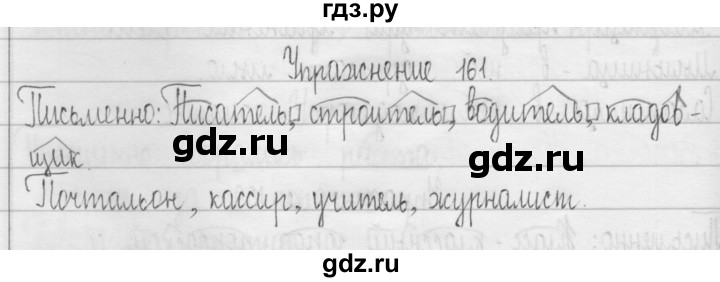 гдз.ру
Упражнение 161.
Письменно: Писатель, строитель, водитель, кладов-
gdz.ru
gdz.ru
щик.
Почтальон, кассир, учитель, журналист.
gdz.ru
gdz.ru